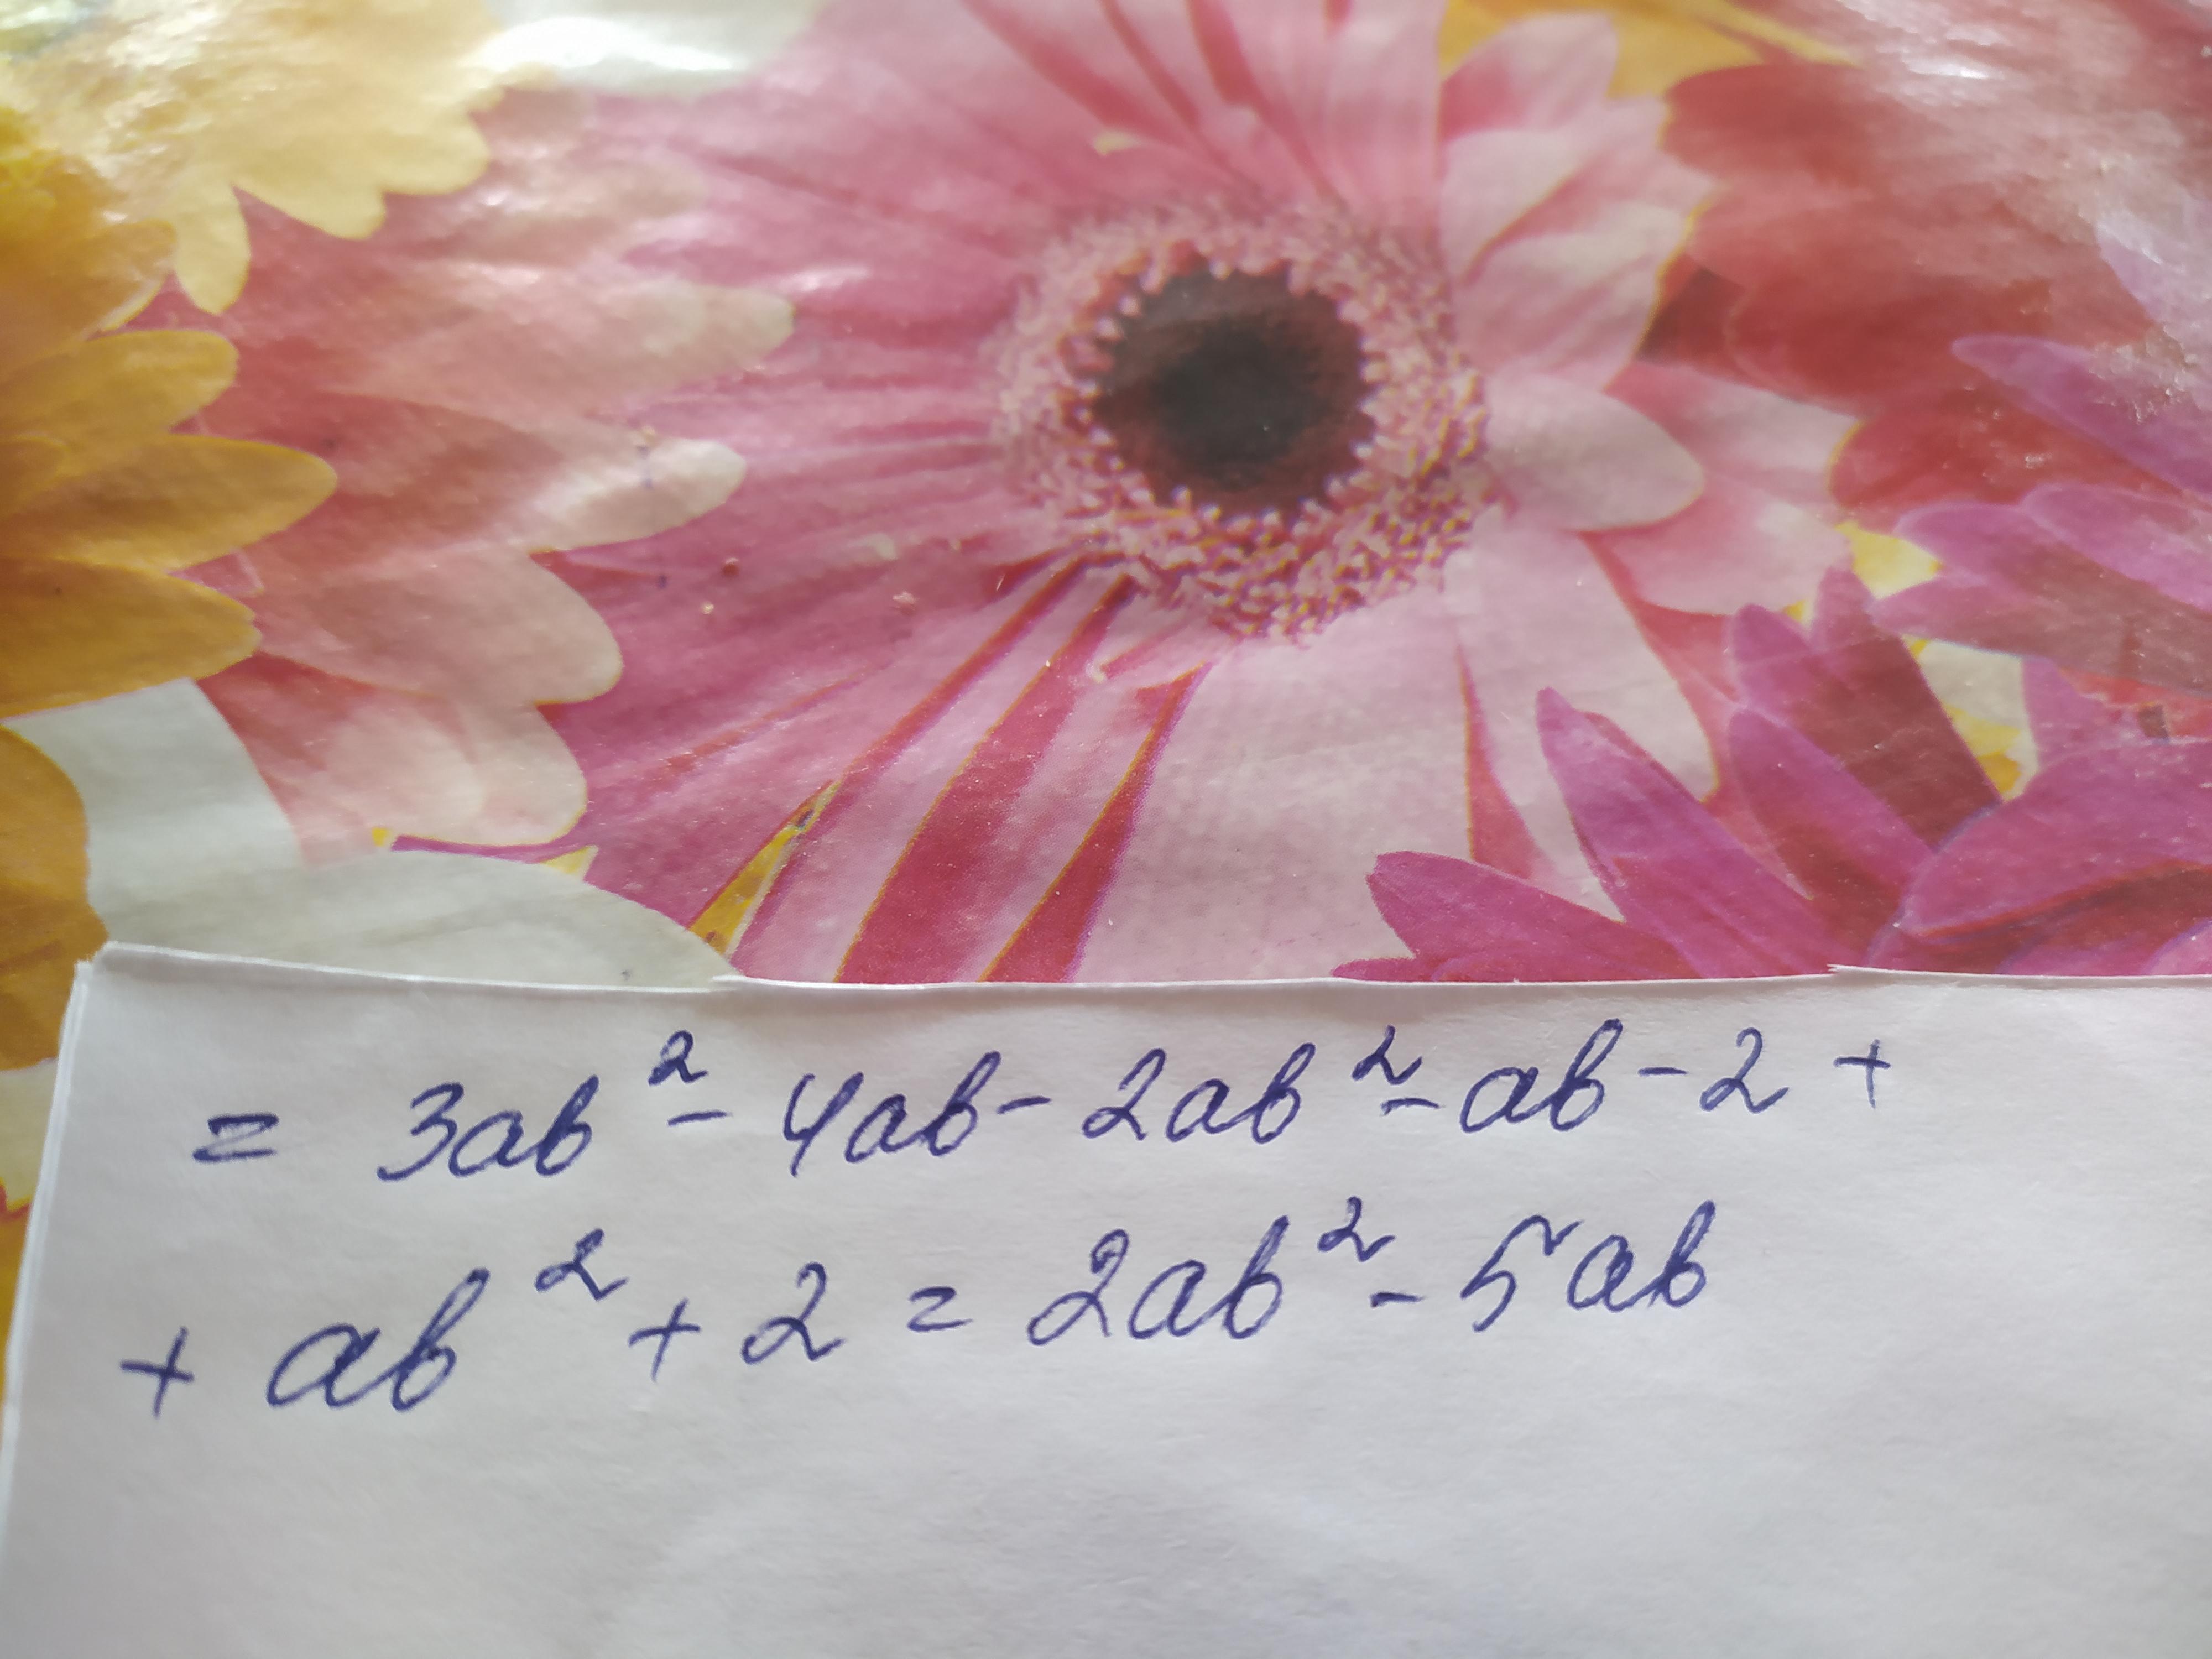 = 3ab² - 4ab - 2ab² - ab - 2 +
+ ab² + 2 = 2ab² - 5ab